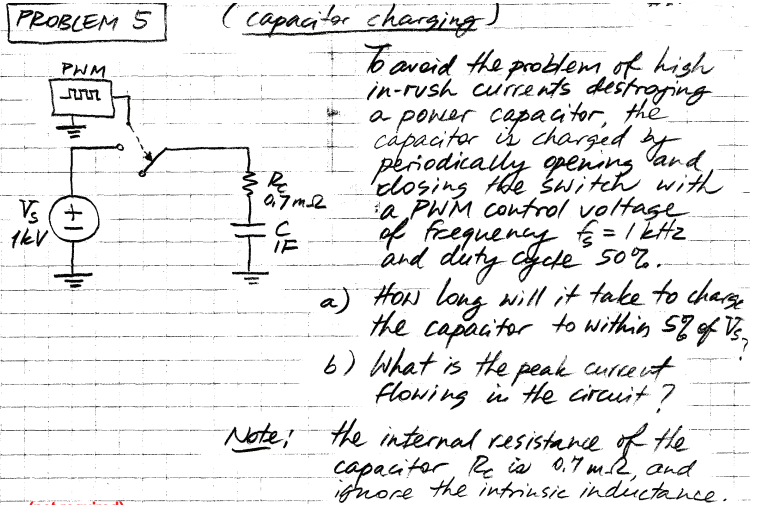 PROBLEM 5
(capacitor charging)
PWM
To avoid the problem of high
in-rush currents destroying
a power capacitor, the
capacitor is charged by
periodically opening and
closing the switch with
a PWM control voltage
of frequency fs = 1 kHz
and duty cycle 50%.
Rc
0.7 mΩ
C
1F
Vs
1kV
+
−
a) How long will it take to charge
the capacitor to within 5% of Vs?
b) What is the peak current
flowing in the circuit?
Note: the internal resistance of the
capacitor Rc is 0.7 mΩ, and
ignore the intrinsic inductance.